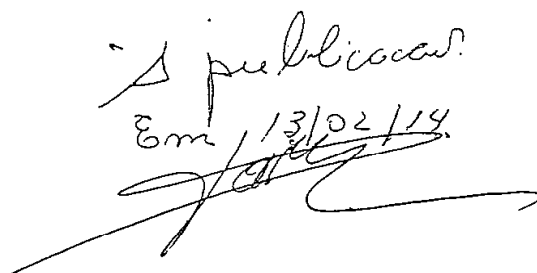 À publicação.
Em 13/02/14